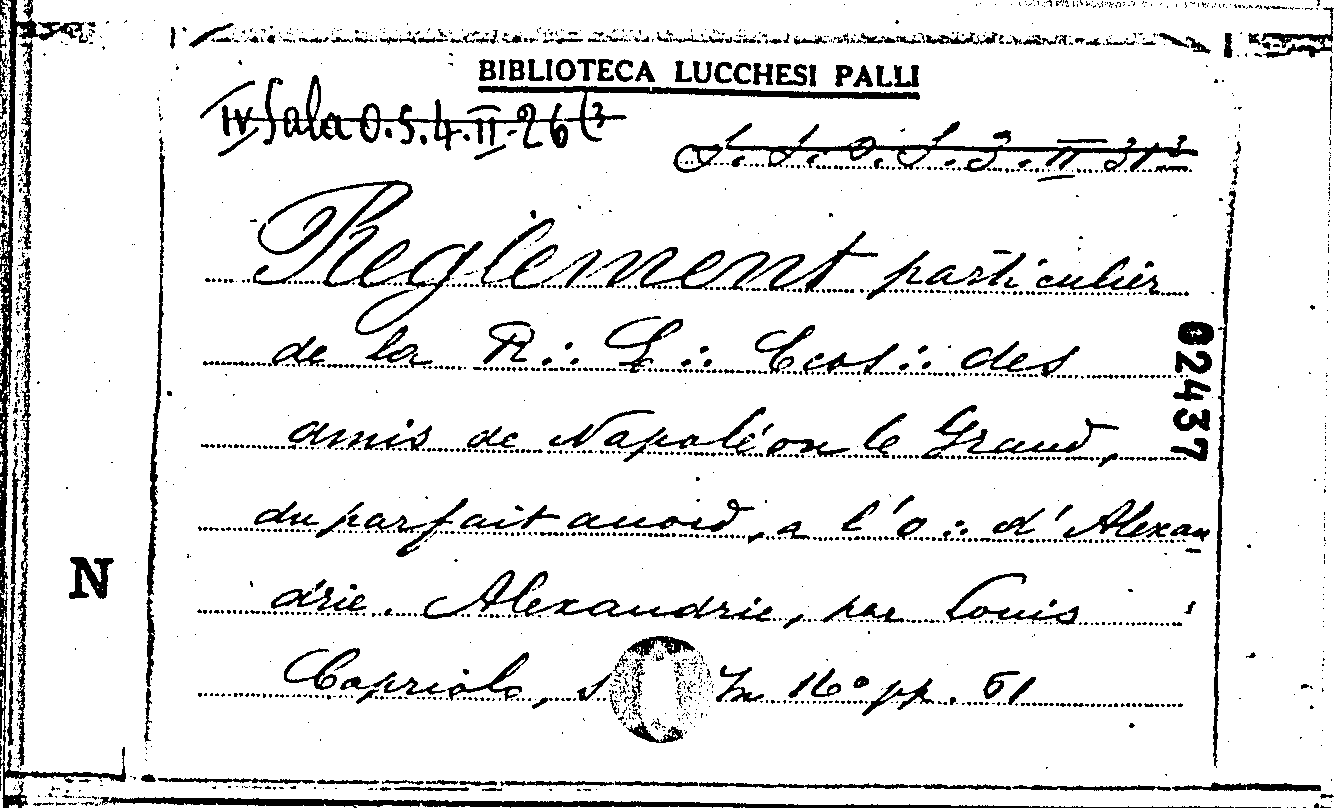 BIBLIOTECA LUCCHESI PALLI
IV Sala O.5.4.II.26(3
L.L.O.S.3.II 31³
Reglement particulier
de la R∴ L∴ Ecos∴ des
amis de Napoléon le Grand,
du parfait accord, a l'o∴ d'Alexan
drie. Alexandrie, par Louis
Capriolo, s In 16° pp. 61
82437
N